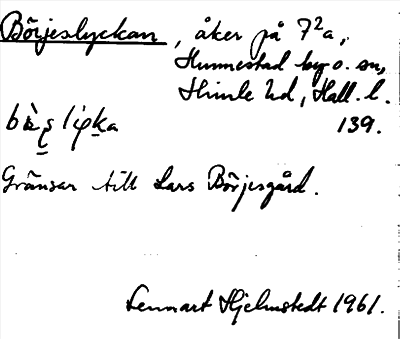 Börjeslyckan, åker på 7²a,
Hunnestad by o. sn,
Himle hd, Hall. l.
139.
Gränsar till Lars Börjesgård.
Lennart Hjelmstedt 1961.